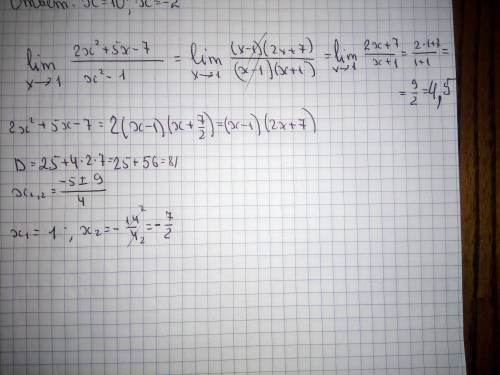 Ответ: x=10; x=-2
lim x→1 (2x²+5x-7)/(x²-1) = lim x→1 ((x-1)(2x+7))/((x-1)(x+1)) = lim x→1 (2x+7)/(x+1) = (2·1+7)/(1+1) =
= 9/2 = 4,5
2x²+5x-7 = 2(x-1)(x+7/2) = (x-1)(2x+7)
D = 25+4·2·7 = 25+56 = 81
x₁,₂ = (-5±9)/4
x₁ = 1; x₂ = -14/4 = -7/2